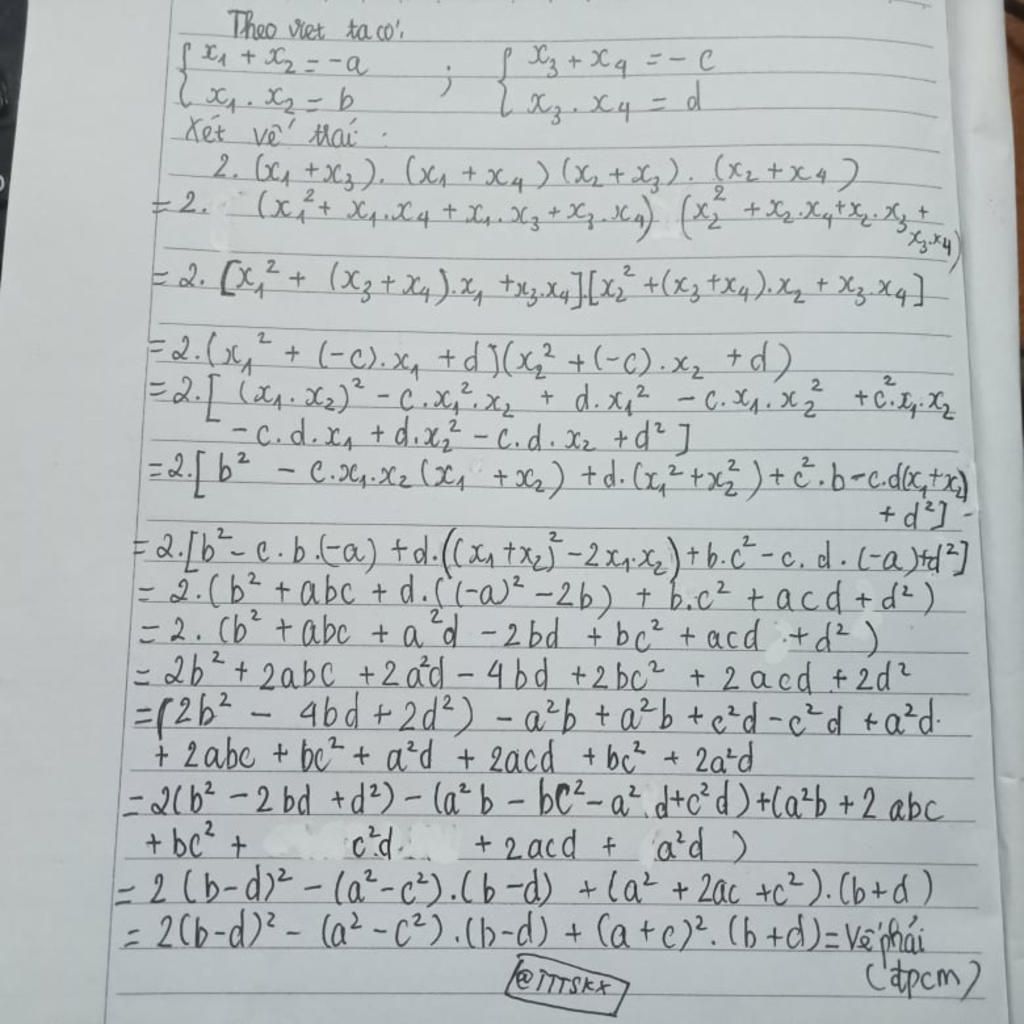 Theo viet ta có:
{ x₁ + x₂ = -a ; { x₃ + x₄ = - c
x₁ . x₂ = b x₃ . x₄ = d
Xét vế trái :
2. (x₁ + x₃). (x₁ + x₄) (x₂ + x₃) . (x₂ + x₄)
= 2. (x₁² + x₁.x₄ + x₁.x₃ + x₃.x₄) (x₂² + x₂.x₄ + x₂.x₃ +
x₃.x₄)
= 2. [x₁² + (x₃ + x₄).x₁ + x₃.x₄].[x₂² + (x₃+x₄).x₂ + x₃.x₄]
= 2.(x₁² + (-c).x₁ + d](x₂² + (-c).x₂ + d)
= 2.[ (x₁.x₂)² - c.x₁².x₂ + d.x₁² - c.x₁.x₂² + c².x₁.x₂
- c.d.x₁ + d.x₂² - c.d.x₂ + d² ]
= 2.[ b² - c.x₁.x₂ (x₁ + x₂) + d.(x₁² + x₂²) + c².b - c.d(x₁+x₂)
+ d²]
= 2.[b² - c.b.(-a) + d.((x₁ + x₂)² - 2x₁.x₂) + b.c² - c.d.(-a)+d²]
= 2.(b² + abc + d.((-a)² - 2b) + b.c² + acd + d²)
= 2. (b² + abc + a²d - 2bd + bc² + acd + d² )
= 2b² + 2abc + 2a²d - 4bd + 2bc² + 2acd + 2d²
= (2b² - 4bd + 2d²) - a²b + a²b + c²d - c²d + a²d.
+ 2abc + bc² + a²d + 2acd + bc² + 2a²d
= 2(b² - 2bd + d²) - (a²b - bc² - a².d + c²d) + (a²b + 2abc
+ bc² + c²d + 2acd + a²d )
= 2 (b-d)² - (a² - c²).(b-d) + (a² + 2ac + c²).(b+d)
= 2(b-d)² - (a² - c²).(b-d) + (a+c)².(b+d) = Vế phải
(đpcm)
@TTTSKX